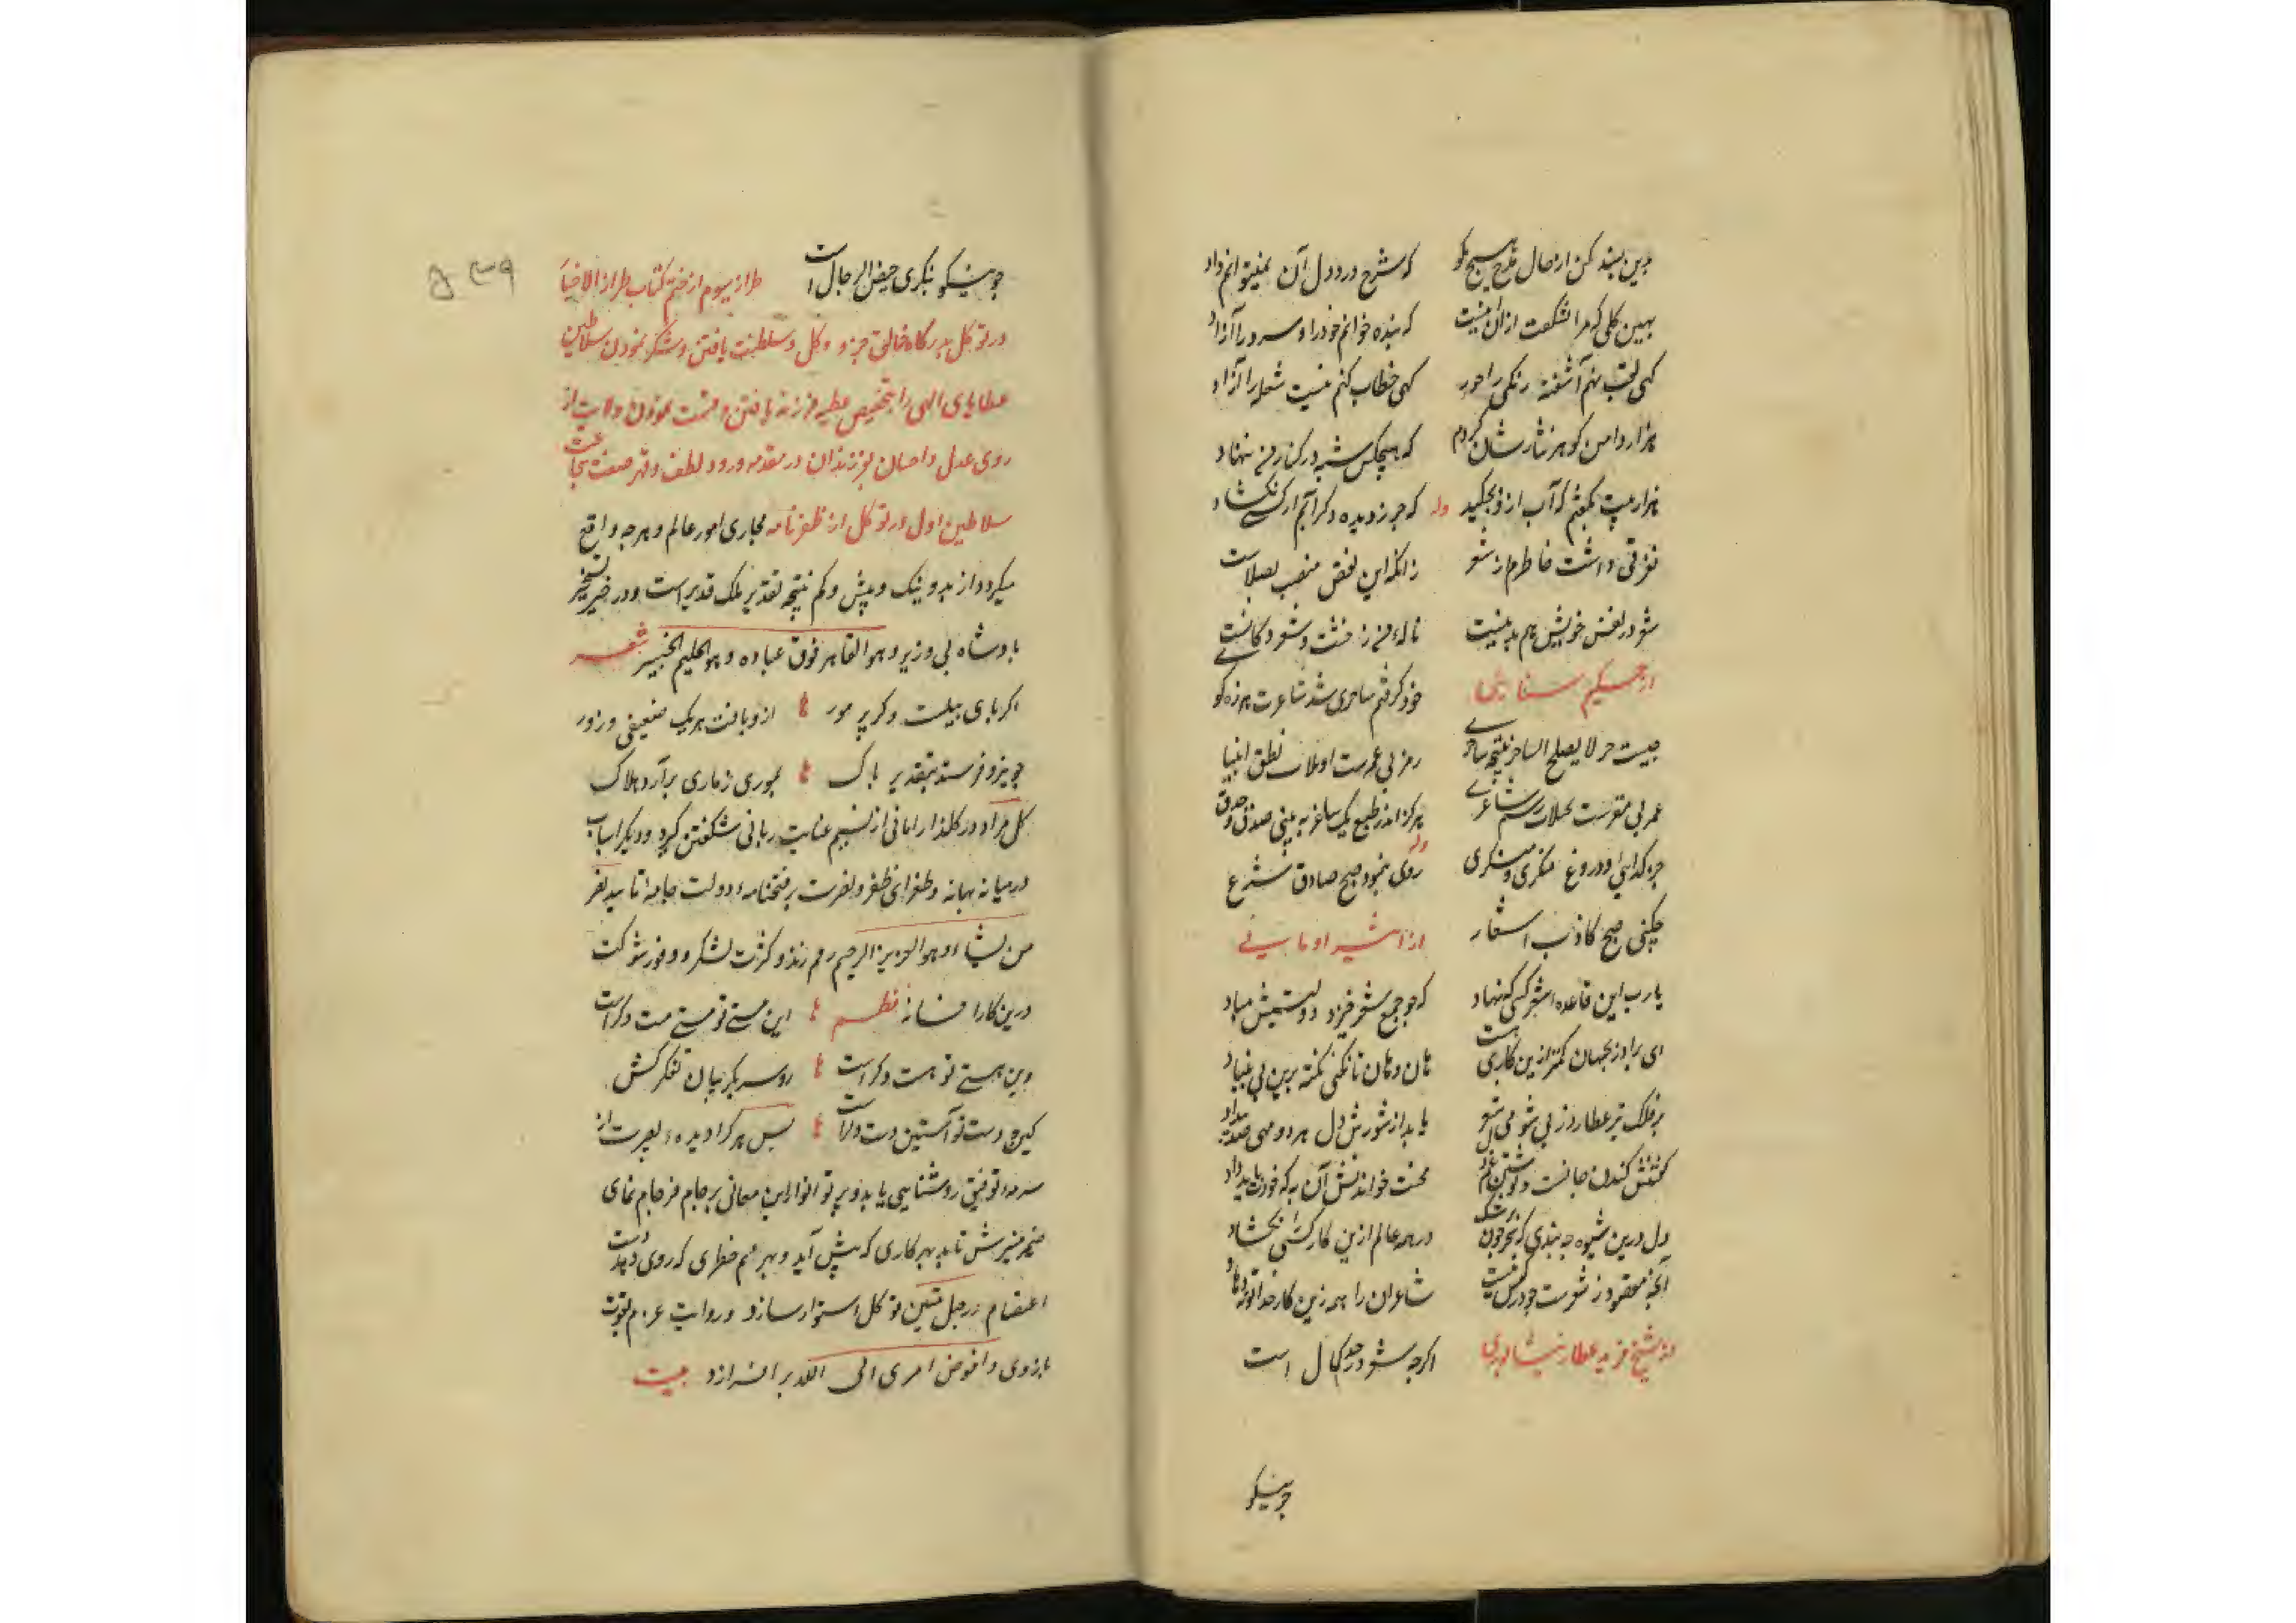 بدین بسند کن از حال مدح هیچ مگو که شرح درد دل آن نمیتوانم داد
بهین گلی که مرا بشکفت ازان اینست که بنده خوانم خود را و سرو را آزاد
گهی لقب نهم آشفته زنگی را حور گهی خطاب کنم مست سفله را آزاد
هزار دامن گوهر نثارشان کردم که هیچکس شبه در کنار من ننهاد
هزار بیت بگفتم که آب ازو بچکید که جز ز دیده دگر آبم از کسی نگشاد وله
تفرقی داشت خاطرم ز شعر زانکه این نقص منصب
شعر در نفس خویش هم بد نیست ناله من ز خست شرکاست
از حکیم سنائی خود گرفتم ساحری شد شاعریت هرزه گو
چیست جز لا یفلح الساحر نتیجه ساحری رمز بی غمزست تاویلات نطق انبیا
غمز بی مغزست تخییلات شاعری هرگز اندر طبع یک شاعر نه بینی صدق و حذق
جز گدایی و دروغ منکری و منکری وله روی بنمود صبح صادق شرع
چکنی صبح کاذب اشعار از اثیر اومانی
یارب این قاعده شعر که نهاد که چو جمع شعرا خیر دو گیتیش مباد
ای برادر بجهان کمتر ازین کاری نیست هان و هان تا نکنی تکیه برین بی بنیاد
بر فلک تیر عطارد ز پی شعر
گفتنش کندن جانست و نوشتن غم دل محنت خواندنش آن به که خود نارد یاد
دل درین شیوه چه بندی که بجز خون در همه عالم ازین کار کسی نگشاد
آنچه مقصود ز شعرست چو در شاعران را همه زین کار خدا توبه دهاد
از شیخ فرید عطار نیشابوری اگرچه شعر در حد کمال است
چو نیکو
چو نیکو بنگری حیض الرجال است طراز سیوم از ختم کتاب طراز الاخبار
در توکل بدرگاه خالق جزو و کل و سلطنت یافتن و شکر نمودن سلاطین
عطایای الهی را بتخصیص عطیه فرزند یافتن و قسمت نمودن ولایت از
روی عدل و احسان بفرزندان در مقدمه ورود لطف و قهر صفت شجاعت
سلاطین اول در توکل از ظفرنامه مجاری امور عالم و هرچه واقع
میگردد از بد و نیک و بیش و کم نتیجه تقدیر ملک قدیر است و در
بادشاه بی وزیر و هو القاهر فوق عباده و هو الحکیم الخبیر شعر
اگر پای پیلست وگر پر مور ازو یافت هریک ضعیفی و زور
چو نیرو فرستد بتقدیر پاک بموری ز ماری برآرد هلاک
گل مراد در گلزار امانی از نسیم عنایت ربانی شکفتن گیرد و دیگر اسباب
درمیانه بهانه و طغرای ظفر و نصرت بر فتحنامه دولت جامه تایید نصر
من یشاء و هو العزیز الرحیم رقم زند و کثرت لشکر و وفور شوکت
درین کار افسانه نظم این مستی تو مستی مست دگرست
وین هستی تو هست دگرست رو سر بگریبان تفکر کش
کین دست تو آستین دست دگرست پس هر کرا دیده بصیرت از
سرمه توفیق روشنایی یابد و پرتو انوار این معانی بر جام فرجام نمای
ضمیر منیرش تابد بهر کاری که پیش آید و بهر مهم خطری که روی دهد دست
اعتصام در حبل متین توکل استوار سازد و رایت عزم بقوت
بازوی و افوض امری الی الله برافرازد بیت